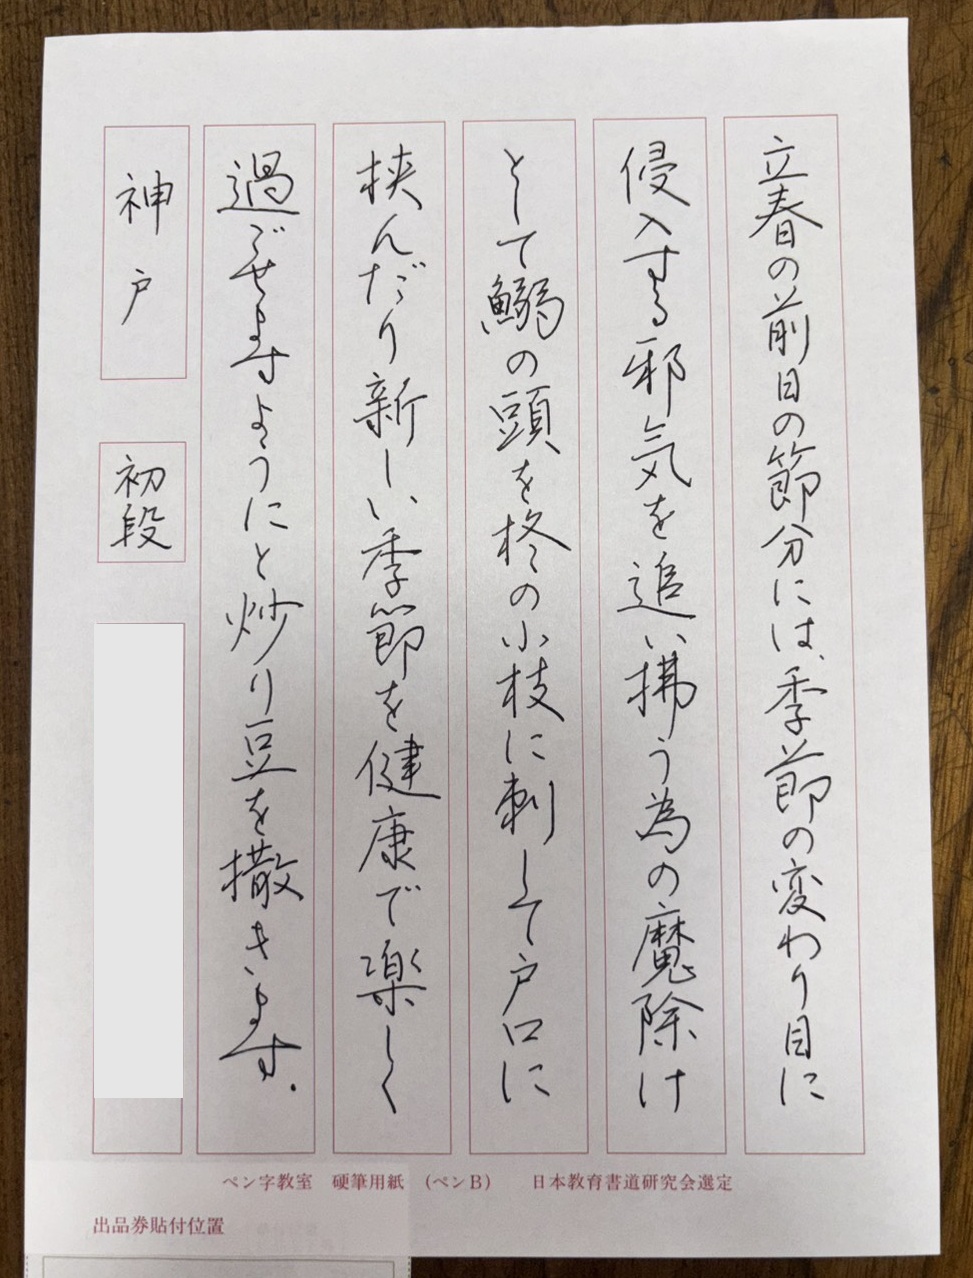 立春の前日の節分には、季節の変わり目に
侵入する邪気を追い拂う為の魔除け
として鰯の頭を柊の小枝に刺して戸口に
挟んだり新しい季節を健康で楽しく
過ごせますようにと炒り豆を撒きます。
神戸
初段
ペン字教室 硬筆用紙 (ペンB) 日本教育書道研究会選定
出品券貼付位置